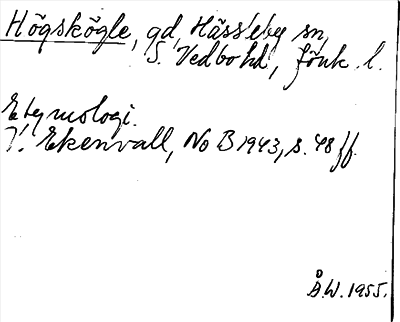 Högskögle, gd, Hässleby sn,
S. Vedbo hd, Jönk. l.
Etymologi.
V. Ekenvall, NoB 1943, s. 48 ff.
Å.W. 1955.